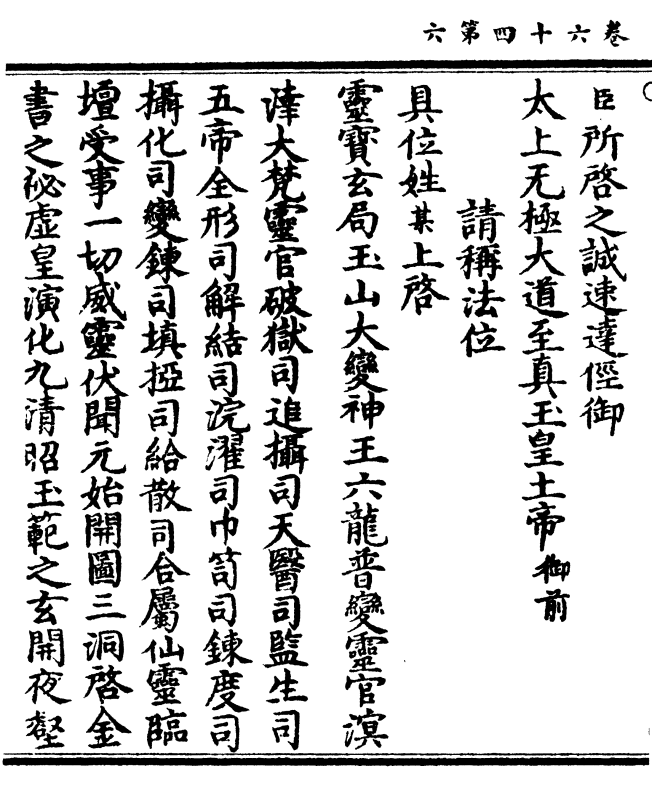 卷六十四第六
臣所啓之誠速達徑御
太上无極大道至真玉皇上帝御前
請稱法位
具位姓某上啓
靈寶玄局玉山大變神王六龍普變靈官溟
涬大梵靈官破獄司追攝司天醫司監生司
五帝全形司解結司浣濯司巾笥司鍊度司
攝化司變鍊司填掗司給散司合屬仙靈臨
壇受事一切威靈伏聞元始開圖三洞啓金
書之祕虛皇演化九清昭玉範之玄開夜壑